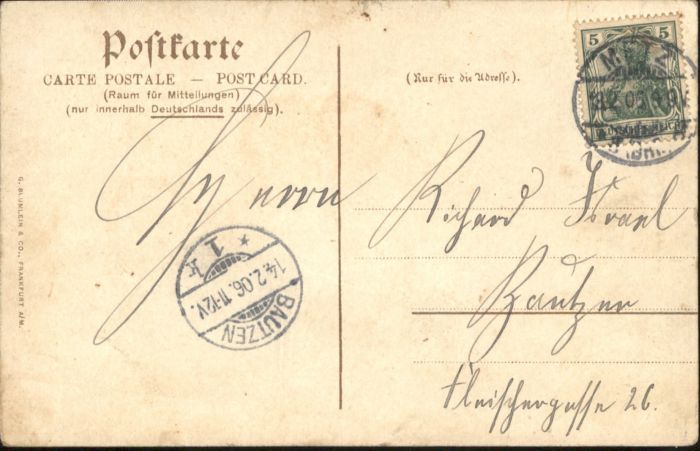 Postkarte
CARTE POSTALE — POST CARD.
(Raum für Mitteilungen)
(nur innerhalb Deutschlands zulässig).
(Nur für die Adresse).
5 5
METZ
BAUTZEN
14.2.06.11-12V.
* 1 k
Herrn
Richard Israel
Bautzen
Fleischergasse 26.
G. BLÜMLEIN & CO., FRANKFURT A/M.